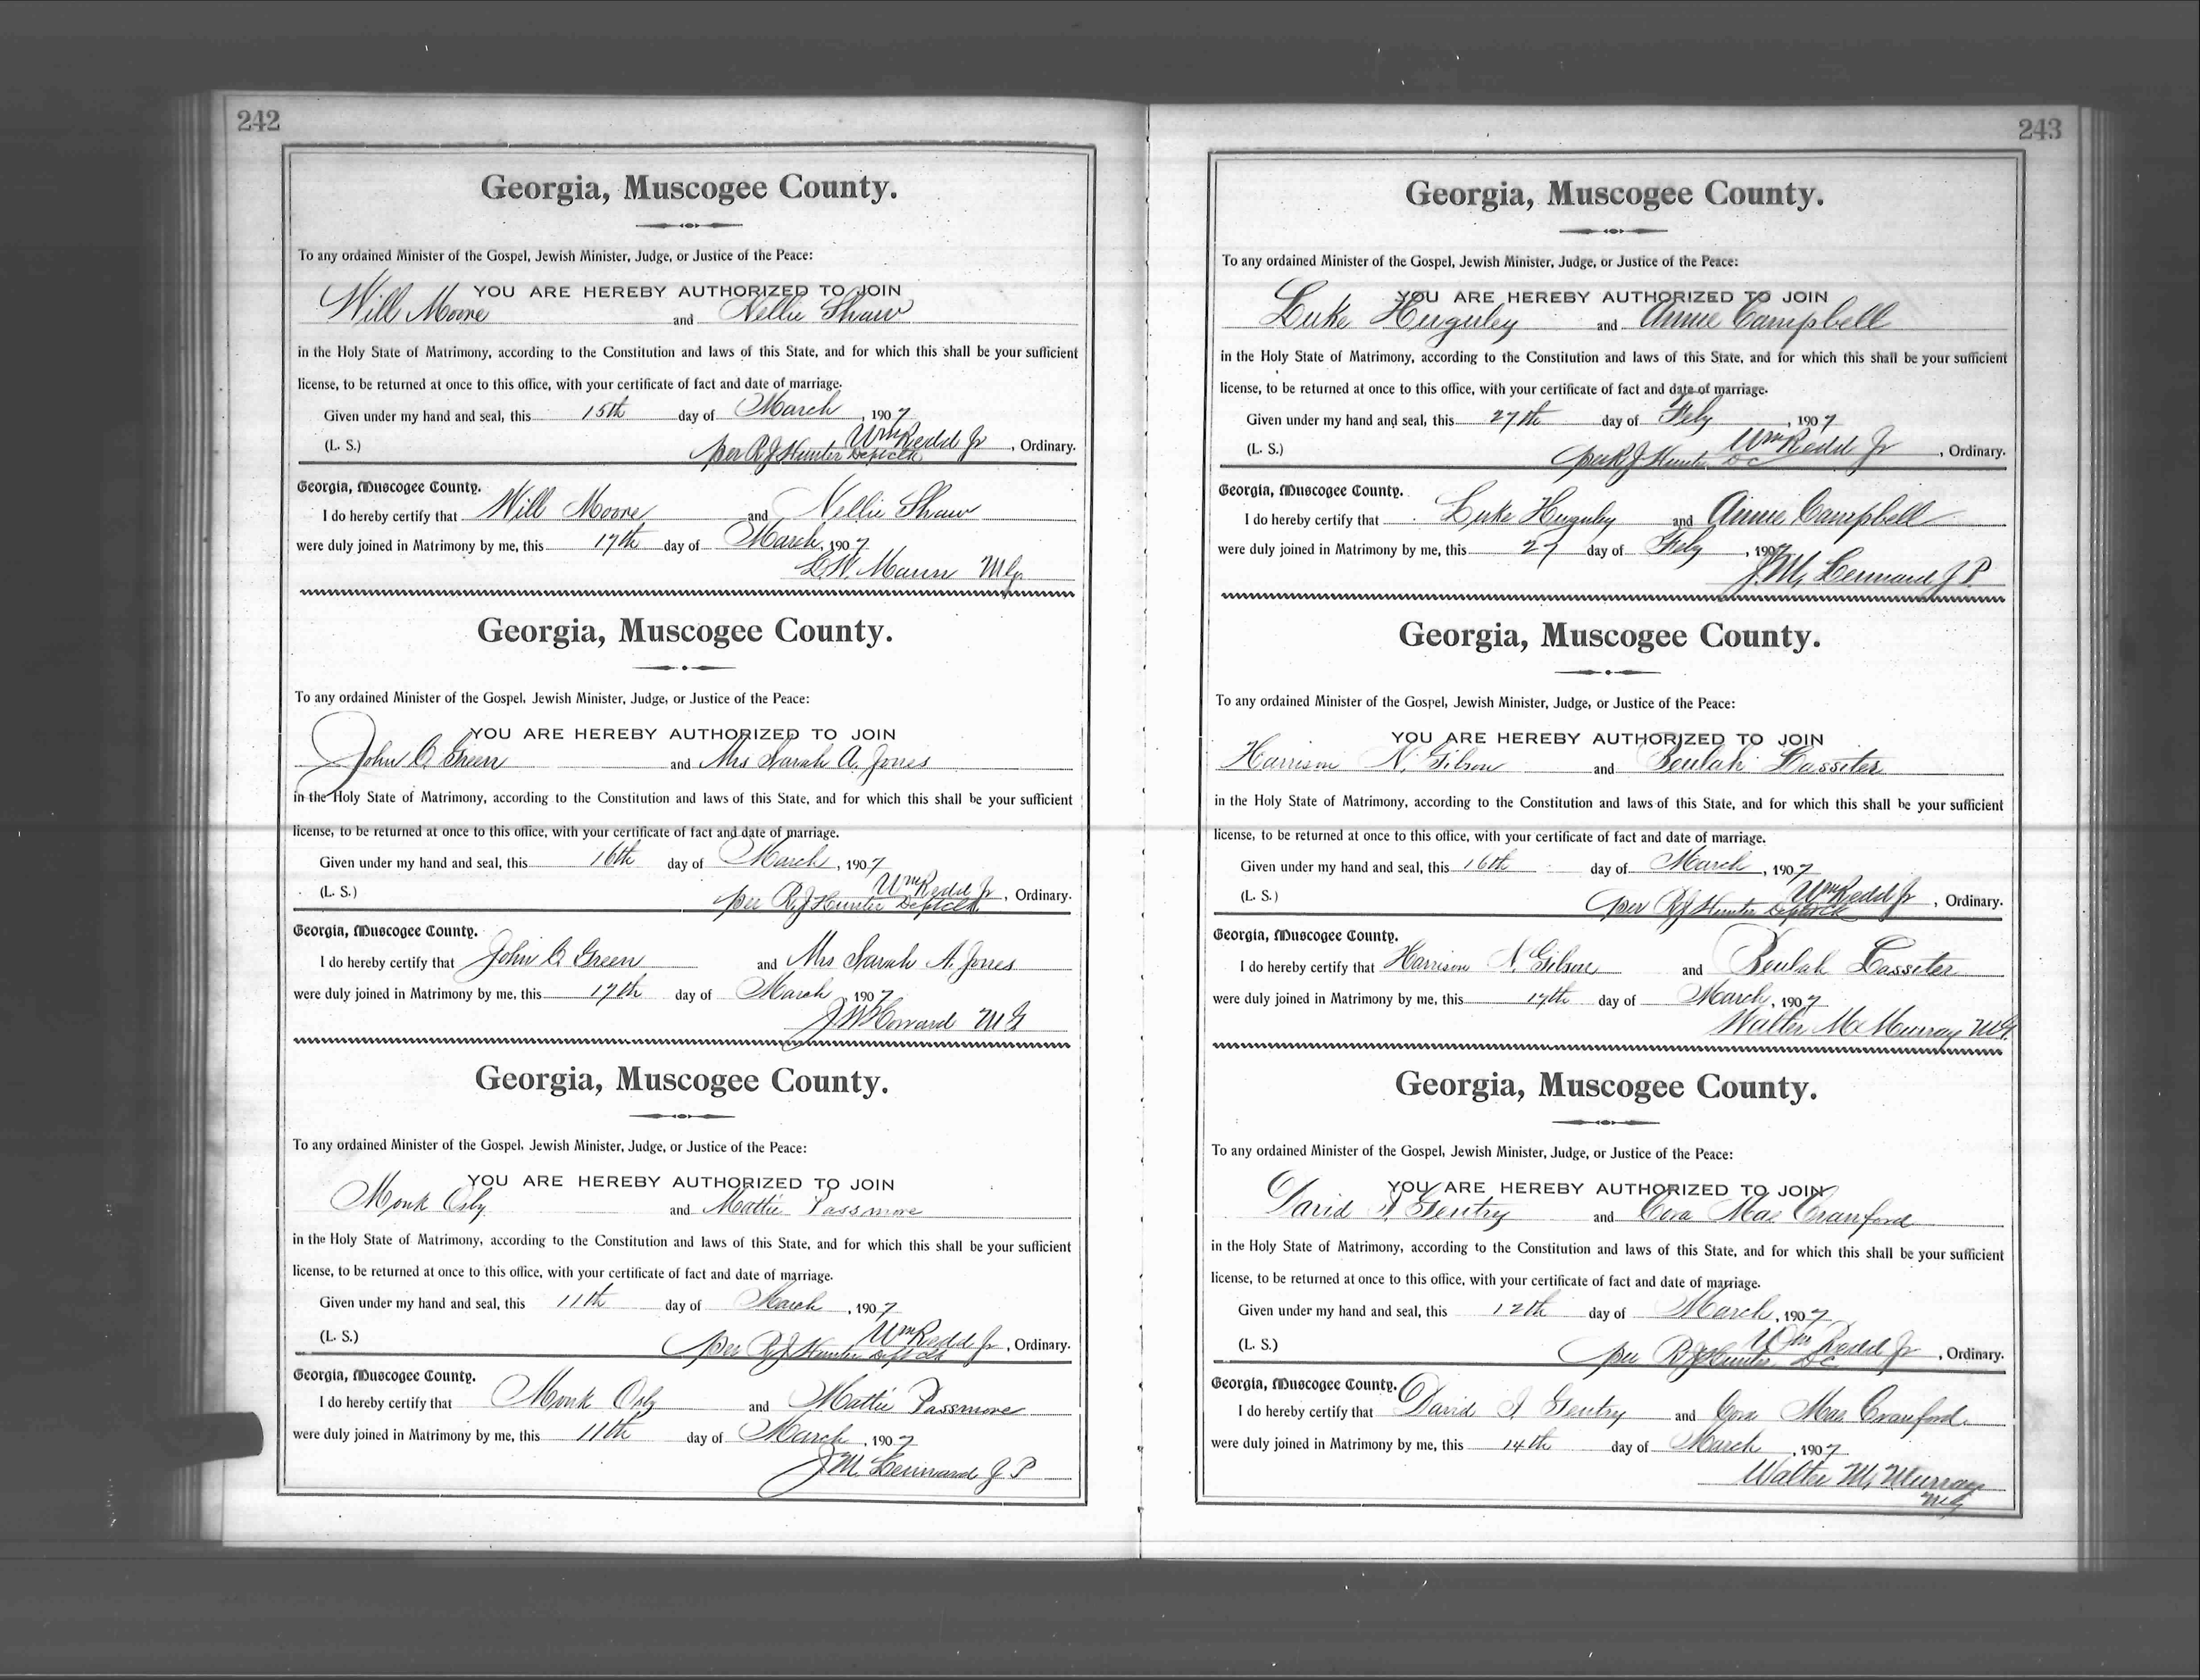 242
Georgia, Muscogee County.
To any ordained Minister of the Gospel, Jewish Minister, Judge, or Justice of the Peace:
YOU ARE HEREBY AUTHORIZED TO JOIN
Will Moore and Nellie Shaw
in the Holy State of Matrimony, according to the Constitution and laws of this State, and for which this shall be your sufficient
license, to be returned at once to this office, with your certificate of fact and date of marriage.
Given under my hand and seal, this 15th day of March, 1907
(L. S.) Wm Redd Jr, Ordinary.
per R J Hunter Dept Clk
Georgia, Muscogee County.
I do hereby certify that Will Moore and Nellie Shaw
were duly joined in Matrimony by me, this 17th day of March, 1907
Mann MG
Georgia, Muscogee County.
To any ordained Minister of the Gospel, Jewish Minister, Judge, or Justice of the Peace:
YOU ARE HEREBY AUTHORIZED TO JOIN
John Green and Mrs Sarah A. Jones
in the Holy State of Matrimony, according to the Constitution and laws of this State, and for which this shall be your sufficient
license, to be returned at once to this office, with your certificate of fact and date of marriage.
Given under my hand and seal, this 16th day of March, 1907
(L. S.) Wm Redd Jr, Ordinary.
per R. J Hunter Dept Clk
Georgia, Muscogee County.
I do hereby certify that John Green and Mrs Sarah A. Jones
were duly joined in Matrimony by me, this 17th day of March, 1907
J W Howard MG
Georgia, Muscogee County.
To any ordained Minister of the Gospel, Jewish Minister, Judge, or Justice of the Peace:
YOU ARE HEREBY AUTHORIZED TO JOIN
Monk Osby and Mattie Passmore
in the Holy State of Matrimony, according to the Constitution and laws of this State, and for which this shall be your sufficient
license, to be returned at once to this office, with your certificate of fact and date of marriage.
Given under my hand and seal, this 11th day of March, 1907
(L. S.) Wm Redd Jr, Ordinary.
per R J Hunter Dept Clk
Georgia, Muscogee County.
I do hereby certify that Monk Osby and Mattie Passmore
were duly joined in Matrimony by me, this 11th day of March, 1907
J M Lennard J P
243
Georgia, Muscogee County.
To any ordained Minister of the Gospel, Jewish Minister, Judge, or Justice of the Peace:
YOU ARE HEREBY AUTHORIZED TO JOIN
Luke Huguley and Annie Campbell
in the Holy State of Matrimony, according to the Constitution and laws of this State, and for which this shall be your sufficient
license, to be returned at once to this office, with your certificate of fact and date of marriage.
Given under my hand and seal, this 27th day of Feby, 1907
(L. S.) Wm Redd Jr, Ordinary.
per R J Hunter DC
Georgia, Muscogee County.
I do hereby certify that Luke Huguley and Annie Campbell
were duly joined in Matrimony by me, this 27 day of Feby, 1907
J. M. Lennard J P.
Georgia, Muscogee County.
To any ordained Minister of the Gospel, Jewish Minister, Judge, or Justice of the Peace:
YOU ARE HEREBY AUTHORIZED TO JOIN
Harrison N. Gilson and Beulah Lassiter
in the Holy State of Matrimony, according to the Constitution and laws of this State, and for which this shall be your sufficient
license, to be returned at once to this office, with your certificate of fact and date of marriage.
Given under my hand and seal, this 16th day of March, 1907
(L. S.) Wm Redd Jr, Ordinary.
per R J Hunter Dept Clk
Georgia, Muscogee County.
I do hereby certify that Harrison N. Gilson and Beulah Lassiter
were duly joined in Matrimony by me, this 17th day of March, 1907
Walter Mc Murray MG.
Georgia, Muscogee County.
To any ordained Minister of the Gospel, Jewish Minister, Judge, or Justice of the Peace:
YOU ARE HEREBY AUTHORIZED TO JOIN
David I. Gentry and Cora Mae Cranford
in the Holy State of Matrimony, according to the Constitution and laws of this State, and for which this shall be your sufficient
license, to be returned at once to this office, with your certificate of fact and date of marriage.
Given under my hand and seal, this 12th day of March, 1907
(L. S.) Wm Redd Jr, Ordinary.
per R J Hunter DC
Georgia, Muscogee County.
I do hereby certify that David I Gentry and Cora Mae Cranford
were duly joined in Matrimony by me, this 14th day of March, 1907
Walter Mc Murray
MG